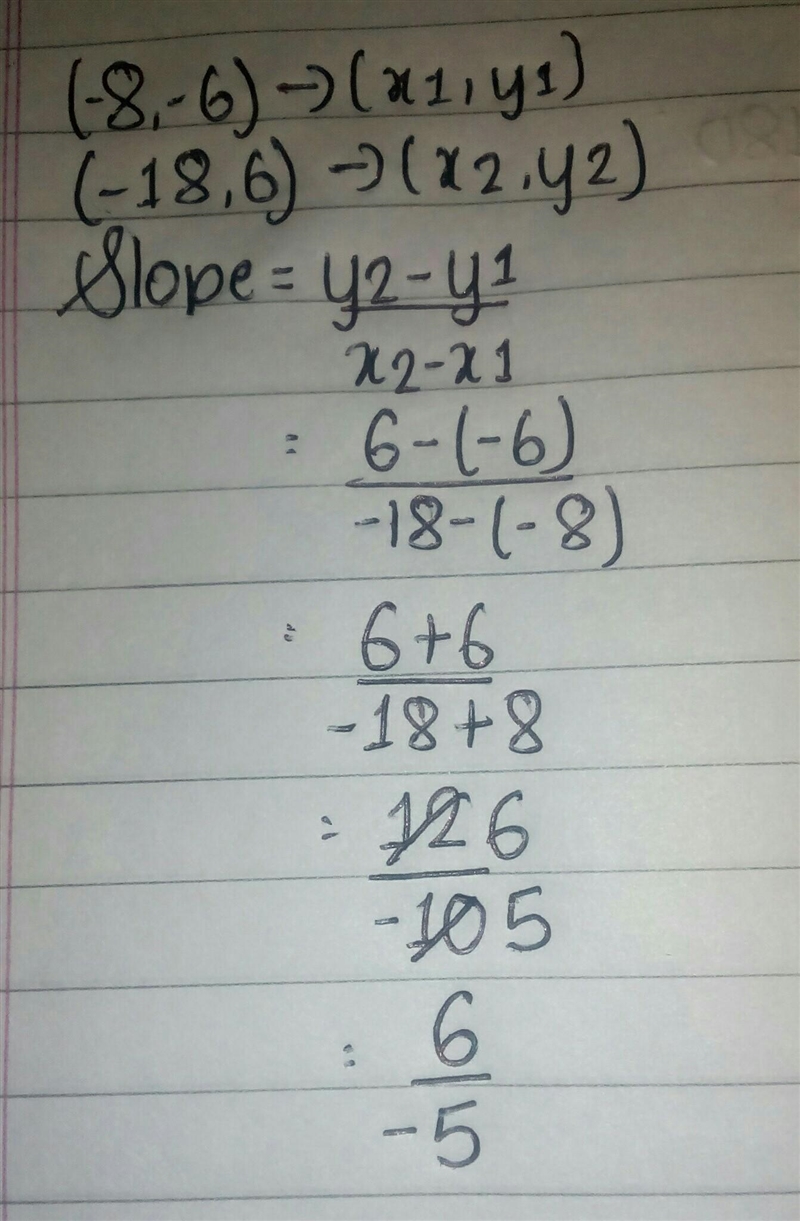 (-8,-6) → (x1, y1)
(-18,6) → (x2, y2)
Slope = y2 - y1
x2 - x1
= 6 - (-6)
-18 - (-8)
= 6 + 6
-18 + 8
= 12 6
-10 5
= 6
-5